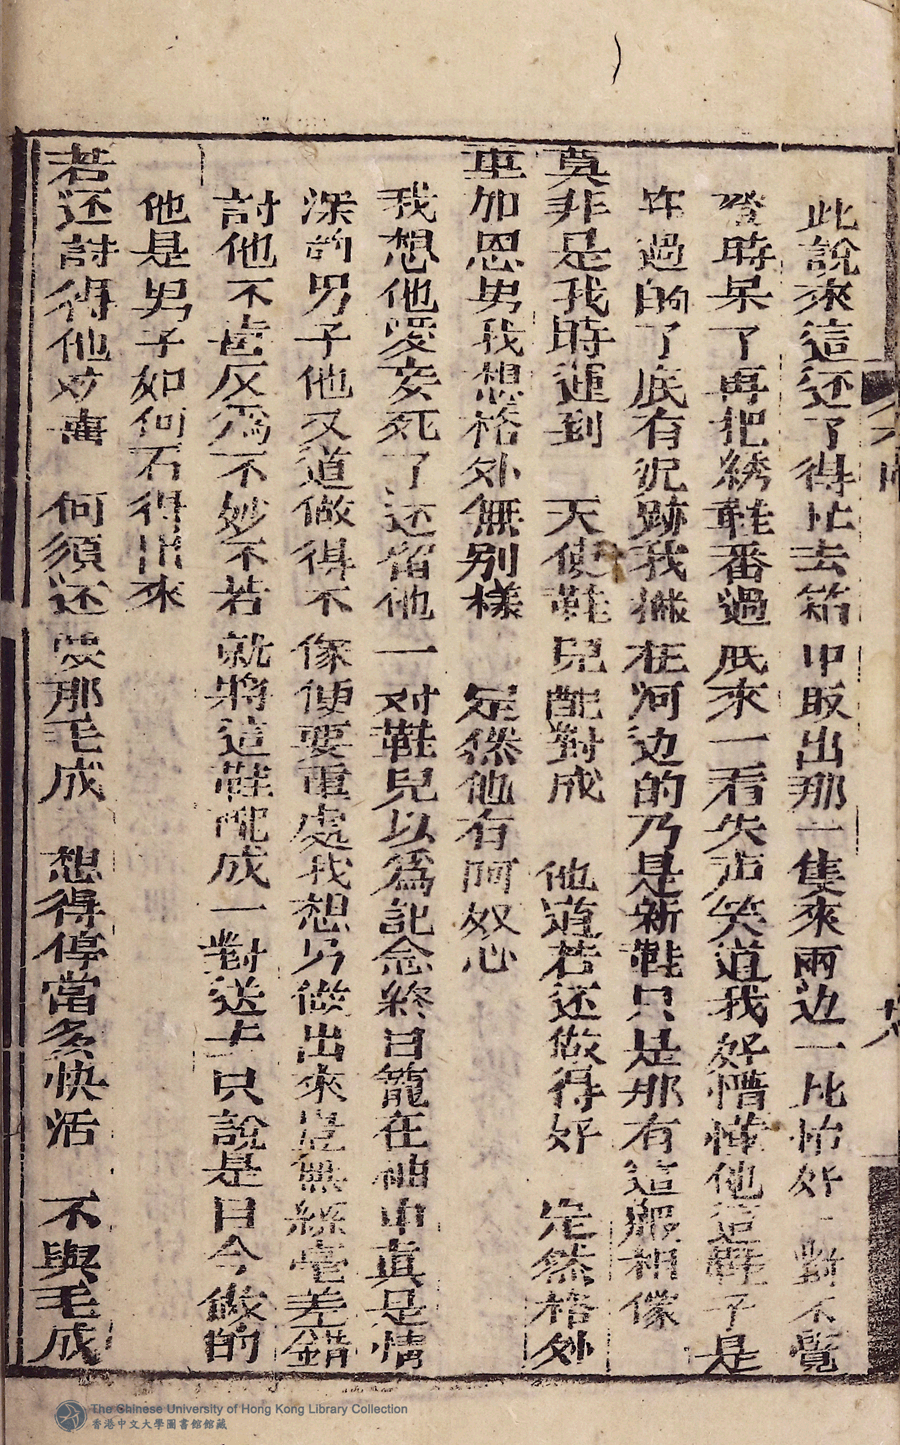 此說來這还了得忙去箱中取出那一隻來兩边一比恰好一對不覺
登時呆了再把綉鞋番過底來一看失声笑道我好懵懂他這鞋子是
許過的了底有泥跡我撿在河边的乃是新鞋只是那有這般相像
莫非是我時運到 天使鞋兒配對成 他道若还做得好 定然格外
重加恩男我想格外無别樣 定係他有阿奴心
我想他愛妾死了还留他一对鞋兒以爲記念終日籠在袖中真是情
深的男子他又道做得不像便要重處我想另做出來豈無絲毫差錯
討他不耑反為不妙不若就將這鞋配成一對送去只說是日今做的
他是男子如何石得出來
若还討得他欢喜 何須还䀡那毛成 想得停當多快活 不與毛成
The Chinese University of Hong Kong Library Collection
香港中文大學圖書館館藏